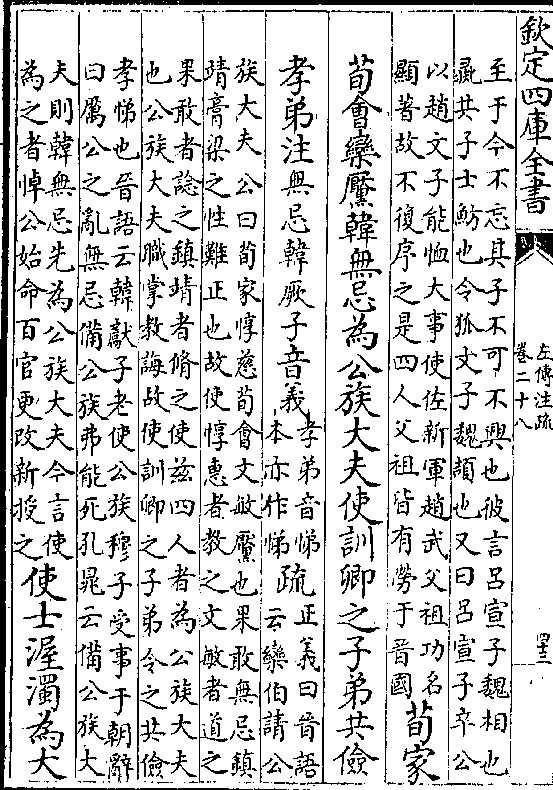 欽定四庫全書
左傳注疏
卷二十八
至于今不忘其子不可不興也彼言呂宣子魏相也
彘共子士魴也令狐文子魏頡也又曰呂宣子卒公
以趙文子能恤大事使佐新軍趙武父祖功名
顯著故不復序之是四人父祖皆有勞于晉國
荀家
荀會欒黶韓無忌為公族大夫使訓卿之子弟共儉
孝弟注無忌韓厥子音義
孝弟音悌
本亦作悌
疏
正義曰晉語
云欒伯請公
族大夫公曰荀家惇慈荀會文敏黶也果敢無忌鎮
靖膏梁之性難正也故使惇惠者教之文敏者道之
果敢者諗之鎮靖者脩之使兹四人者為公族大夫
也公族大夫職掌教誨故使訓卿之子弟令之共儉
孝悌也晉語云韓獻子老使公族穆子受事于朝辭
曰厲公之亂無忌備公族弗能死孔晁云備公族大
夫則韓無忌先為公族大夫今言使
為之者悼公始命百官更改新授之
使士渥濁為大